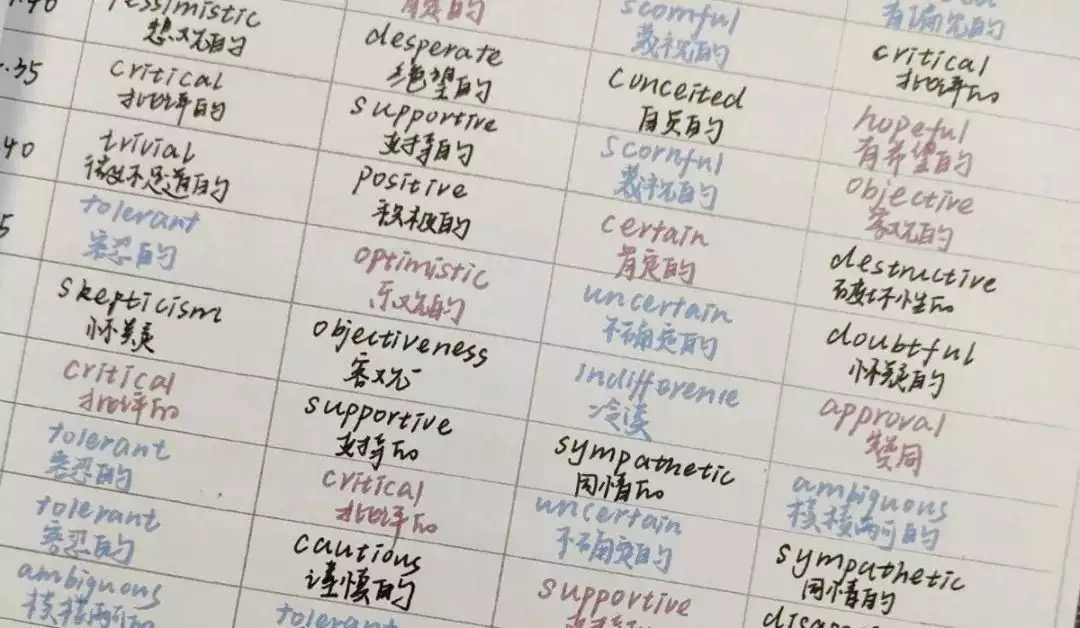 有偏见的
scornful
critical
蔑视的
批评的
desperate
conceited
hopeful
悲观的
绝望的
自负的
有希望的
.35
critical
supportive
scornful
objective
批评的
支持的
蔑视的
客观的
.40
trivial
positive
certain
destructive
微不足道的
积极的
肯定的
破坏性的
5
tolerant
optimistic
uncertain
doubtful
容忍的
乐观的
不确定的
怀疑的
skepticism
objectiveness
indifference
approval
怀疑
客观
冷漠
赞同
critical
supportive
sympathetic
ambiguous
批评的
支持的
同情的
模棱两可的
tolerant
critical
uncertain
sympathetic
容忍的
批评的
不确定的
同情的
tolerant
cautious
supportive
容忍的
谨慎的
ambiguous
tolerant
模棱两可的